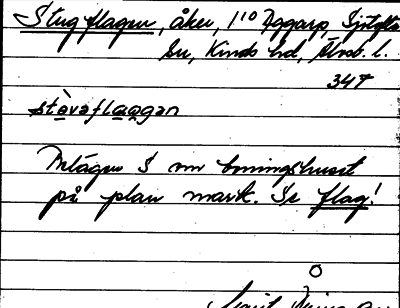 Stugflagen, åker, 1/10 Aggarp, Sjötofta
sn, Kinds hd, Älvsb. l.
347
stòvəflaagən
Inlägues S om boningshuset
på plan mark. Se flag!